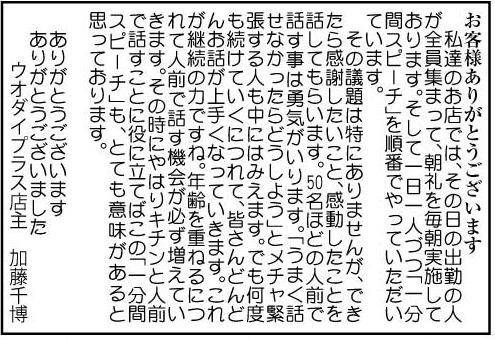 お客様ありがとうございます
私達のお店では、その日の出勤の人
が全員集まって、朝礼を毎朝実施して
おります。そして一日一人づつ「一分
間スピーチ」を順番でやっていただい
ています。
その議題は特にありませんが、でき
たら感謝したいこと、感動したことを
話してもらいます。50名ほどの人前で
話す事は勇気がいります。「うまく話
せなかったらどうしよう」とメチャ緊
張する人も中にはみえます。でも何度
も続けていくにつれて、皆さんどんど
んお話が上手くなっていきます。これ
が継続の力ですね。年齢を重ねるにつ
れて人前で話す機会が必ず増えてい
きます。その時にやはりキチンと人前
で話すことに役に立てばこの「一分間
スピーチ」も、とても意味があると
思っております。
ありがとうございます
ありがとうございました
ウオダイプラス店主　加藤千博